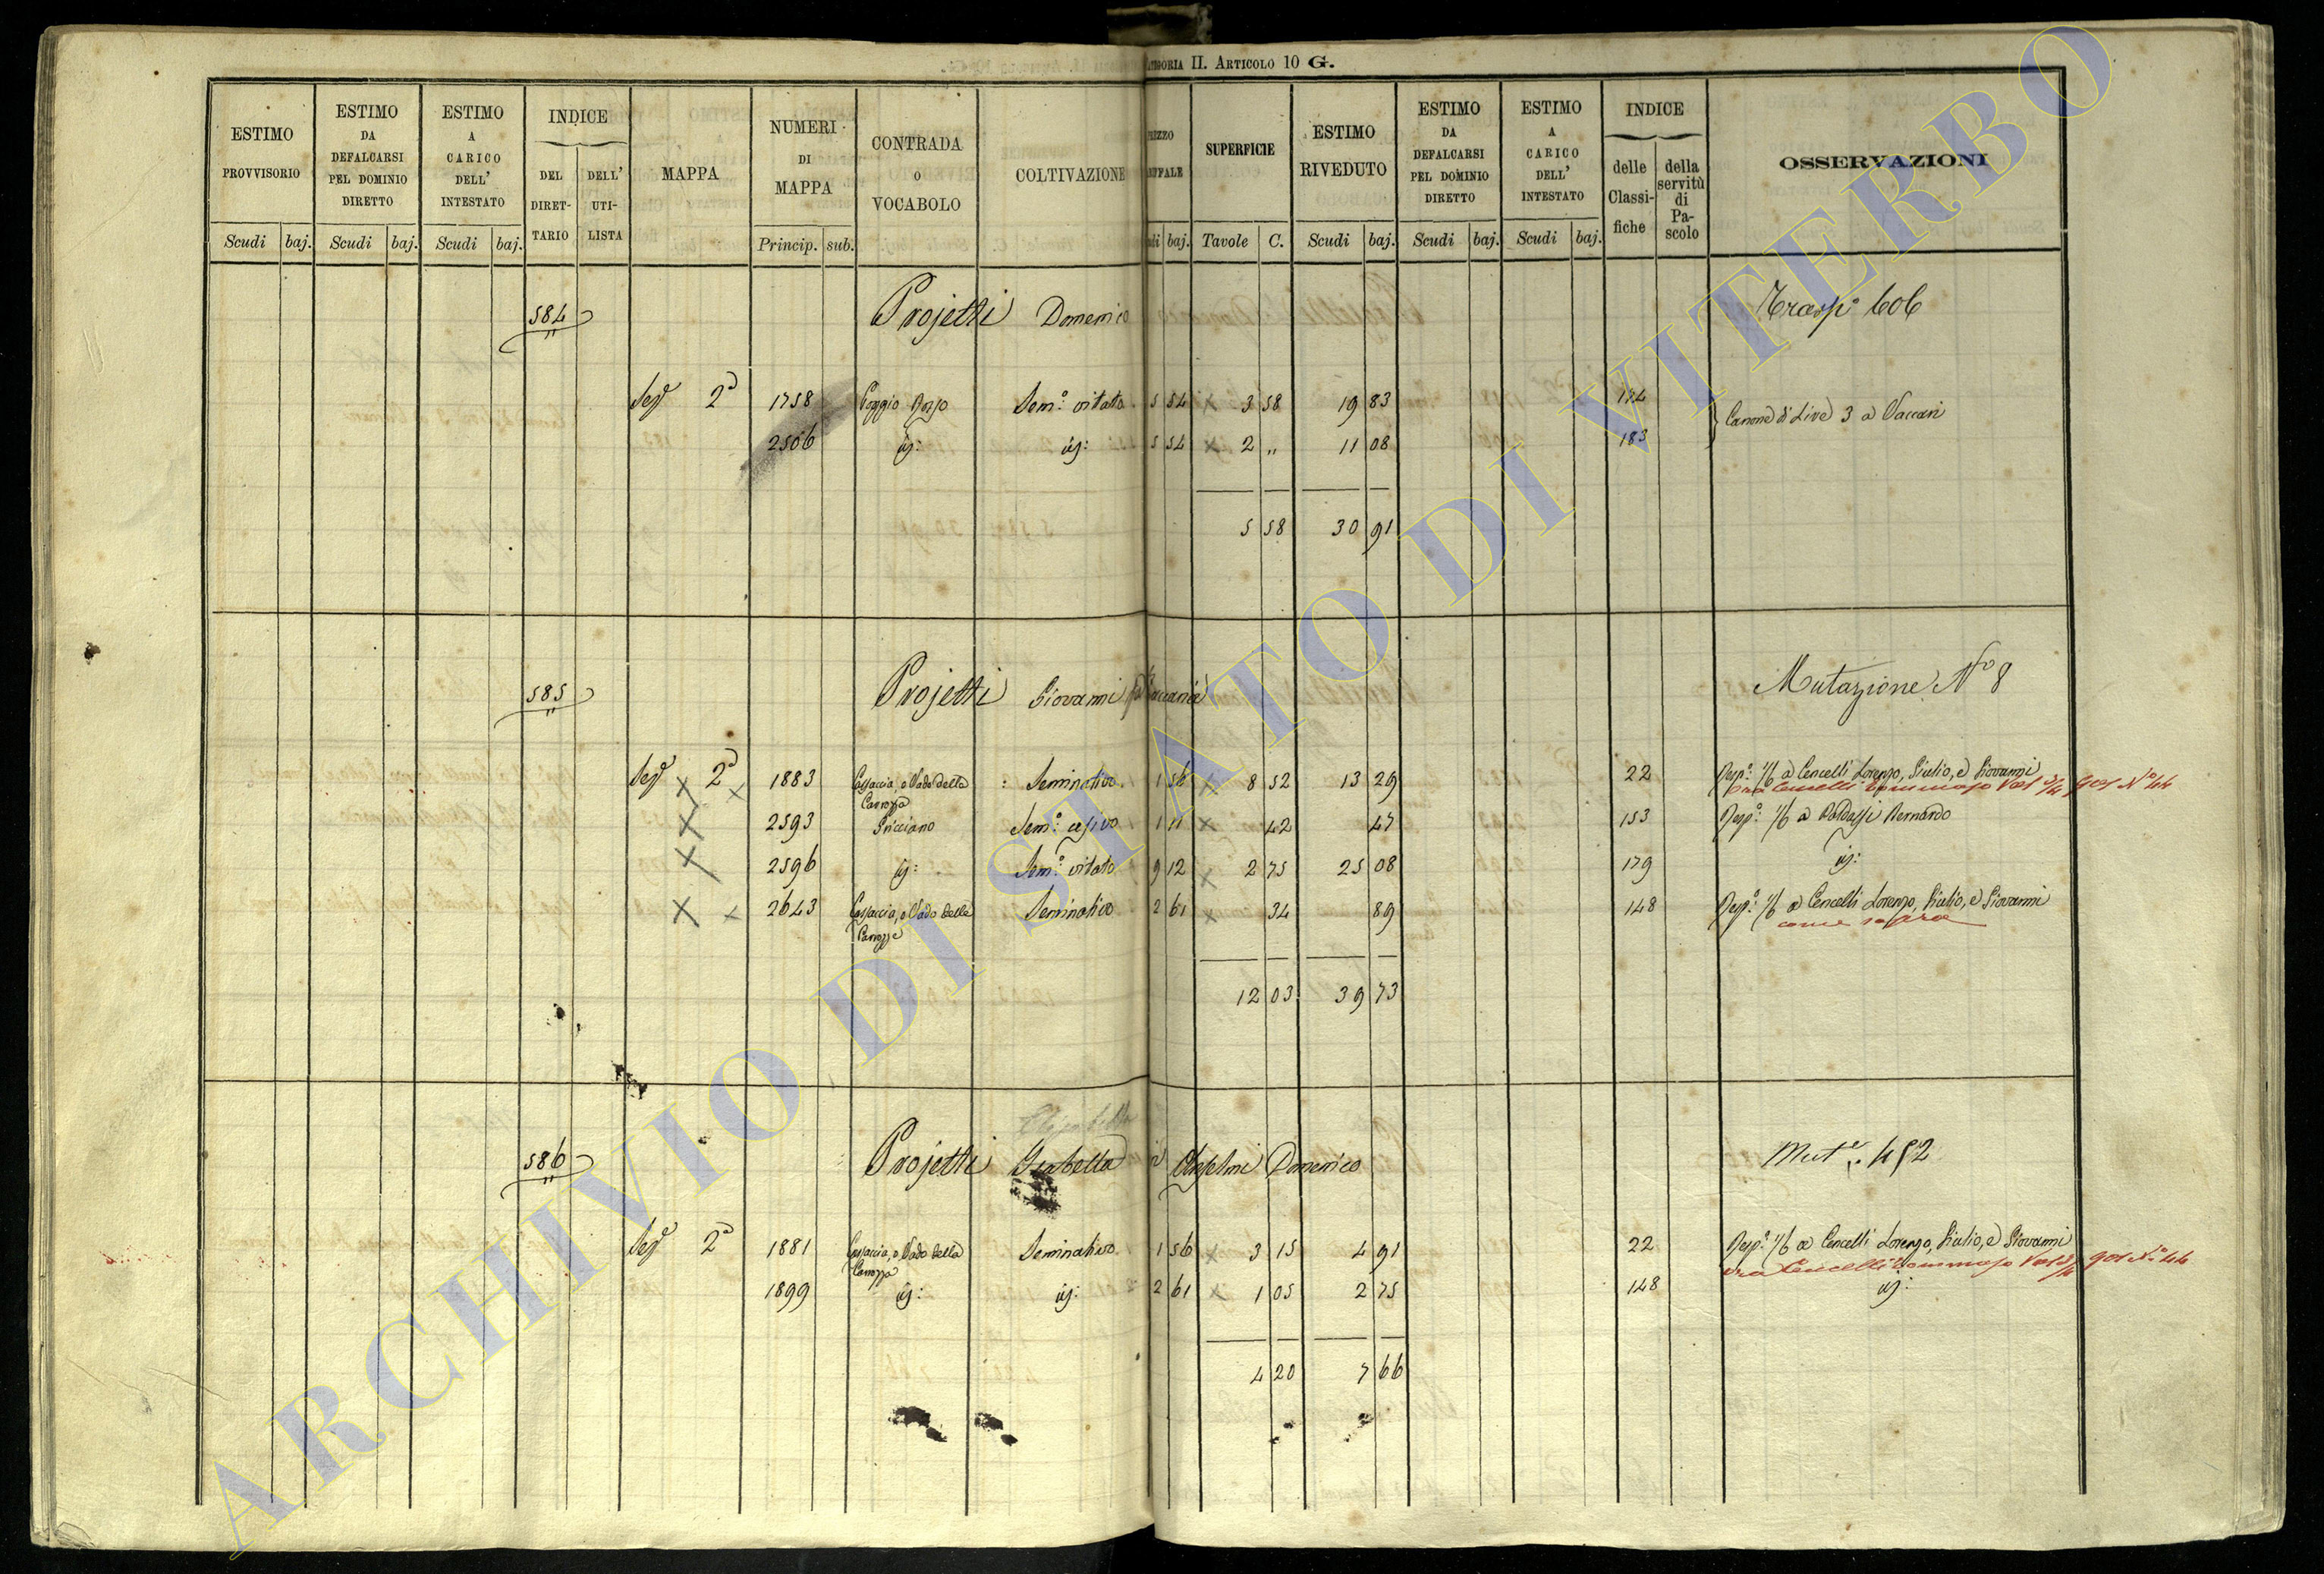 II. ARTICOLO 10 G.
ESTIMO PROVVISORIO
ESTIMO DA DEFALCARSI PEL DOMINIO DIRETTO
ESTIMO A CARICO DELL' INTESTATO
INDICE
DEL DIRETTARIO
DELL' UTILISTA
MAPPA
NUMERI DI MAPPA
CONTRADA O VOCABOLO
COLTIVAZIONE
SUPERFICIE
ESTIMO RIVEDUTO
ESTIMO DA DEFALCARSI PEL DOMINIO DIRETTO
ESTIMO A CARICO DELL' INTESTATO
INDICE
delle Classifiche
della servitù di Pascolo
OSSERVAZIONI
Scudi baj. Scudi baj. Scudi baj. Princip. sub. baj. Tavole C. Scudi baj. Scudi baj. Scudi baj.
584 Projetti Domenico 606
Sez.e 2a 1758 Poggio Sem.o vitato 5 54 3 58 19 83 174 Canone di Lire 3 a Vaccari
2506 id: id: 5 54 2 " 11 08 183
5 58 30 91
585 Projetti Giovanni Mutazione No 8
Sez.e 2a 1883 Cassaccia, o Vado della Seminativo 1 56 8 52 13 29 22 Resp.o 1/6 a Cencelli Lorenzo, Giulio, e Giovanni
Carrozza ora Cencelli Tommaso No 44
2593 Gricciano Sem.o 1 11 42 47 153 Resp.o 1/6 a Baldassi Bernardo
2596 id: Sem.o vitato 9 12 2 75 25 08 179 id:
2643 Cassaccia, o Vado della Seminativo 2 61 34 89 148 Resp.o 1/6 a Cencelli Lorenzo, Giulio, e Giovanni
Carrozze come sopra
12 03 39 73
586 Projetti Isabella in Anselmi Domenico Mut.e 452
Sez.e 2a 1881 Cassaccia, o Vado della Seminativo 1 56 3 15 4 91 22 Resp.o 1/6 a Cencelli Lorenzo, Giulio, e Giovanni
Carrozza ora Cencelli Tommaso No 44
1899 id: id: 2 61 1 05 2 75 148 id:
4 20 7 66
ARCHIVIO DI STATO DI VITERBO